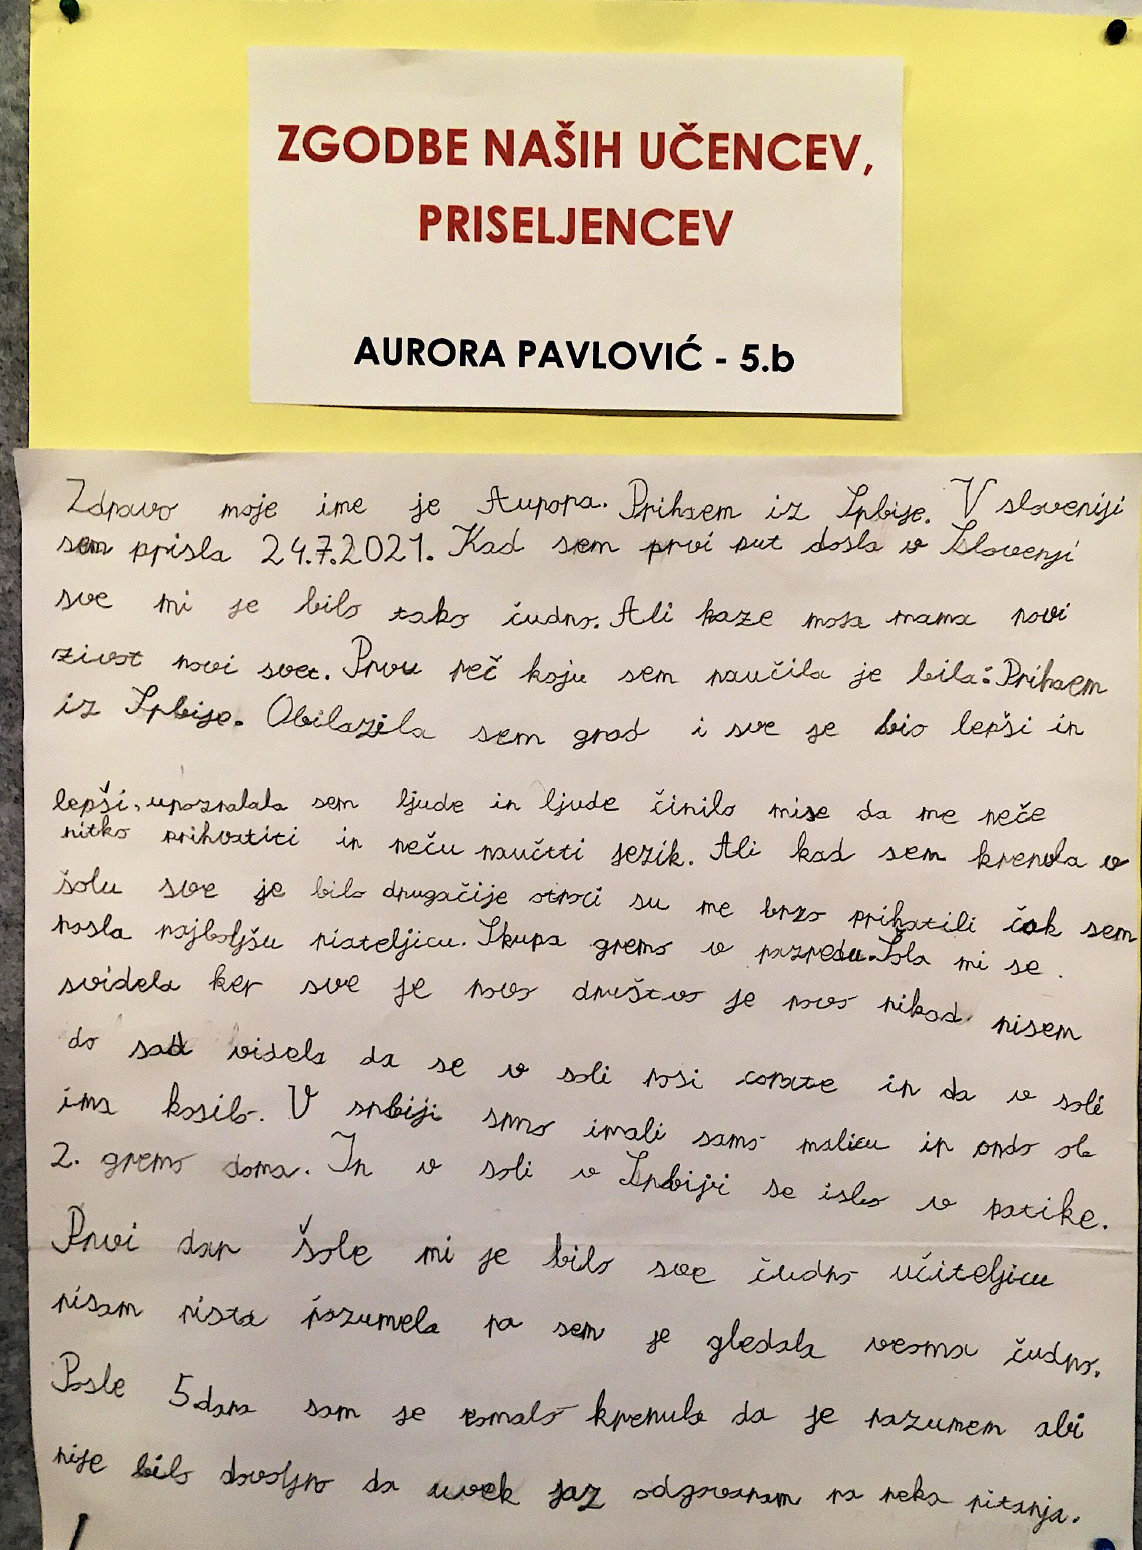 ZGODBE NAŠIH UČENCEV,
PRISELJENCEV
AURORA PAVLOVIĆ - 5.b
Zdravo moje ime je Aurora. Prihaem iz Srbije. V sloveniji
sem prisla 24.7.2021. Kad sem prvi put dosla v Slovenji
sve mi je bilo tako čudno. Ali kaze moja mama novi
zivot novi svet. Prvu reč koju sem naučila je bila: Prihaem
iz Srbije. Obilazila sem grad i sve je bio lepši in
lepši, upoznalala sem ljude in ljude činilo mise da me neče
nitko prihvatiti in neču naučiti jezik. Ali kad sem krenula v
šolu sve je bilo drugačije otroci su me brzo prihatili čak sem
nasla najboljšu piateljicu. Skupa gremo v razredu. Šola mi se
svidela ker sve je novo društvo je novo nikad nisem
do sad videla da se v soli nosi copate in da v soli
ima kosilo. V srbiji smo imali samo malicu in ondo ob
2. gremo doma. In v soli v Srbiji se islo v patike.
Prvi dan šole mi je bilo sve čudno učiteljicu
nisam nista razumela pa sem je gledala veoma čudno.
Posle 5 dana sam je pomalo krenula da je razumem abi
nije bilo dovoljno da uvek jaz odgovaram na neka pitanja.